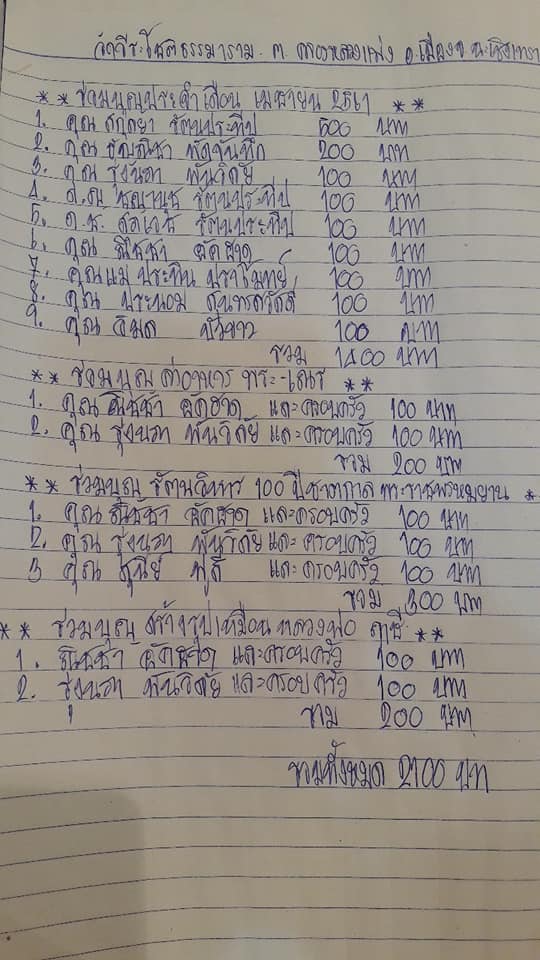 วัดวีระโชติธรรมาราม ต. คลองหลวงแพ่ง อ.เมือง จ.ฉะเชิงเทรา
** ร่วมบุญประจำเดือน เมษายน 2561 **
1. คุณ สกุลยา รัตนประทีป 500 บาท
2. คุณ ธัญณิชา พัดจันทึก 200 บาท
3. คุณ รุ่งนภา พันวิลัย 100 บาท
4. ด.ญ รัตนประทีป 100 บาท
5. ด.ช. รัตนประทีป 100 บาท
6. คุณ ณิชชา 100 บาท
7. คุณแม่ ประทิน ปราโมทย์ 100 บาท
8. คุณ ประนอม สุนทรสวัสดิ์ 100 บาท
9. คุณ วิมล บัวขาว 100 บาท
รวม 1400 บาท
** ร่วมบุญ ค่าอาหาร พระ-เณร **
1. คุณ ณิชชา และครอบครัว 100 บาท
2. คุณ รุ่งนภา พันวิลัย และครอบครัว 100 บาท
รวม 200 บาท
** ร่วมบุญ รัตนวิหาร 100 ปีชาตกาล พระราชพรหมยาน *
1. คุณ ณิชชา และครอบครัว 100 บาท
2. คุณ รุ่งนภา พันวิลัย และครอบครัว 100 บาท
3 คุณ สุนีย์ ฟูดี และครอบครัว 100 บาท
รวม 300 บาท
** ร่วมบุญ สร้างรูปเหมือน หลวงพ่อ ฤาษี **
1. ณิชชา และครอบครัว 100 บาท
2. รุ่งนภา พันวิลัย และครอบครัว 100 บาท
รวม 200 บาท
รวมทั้งหมด 2100 บาท